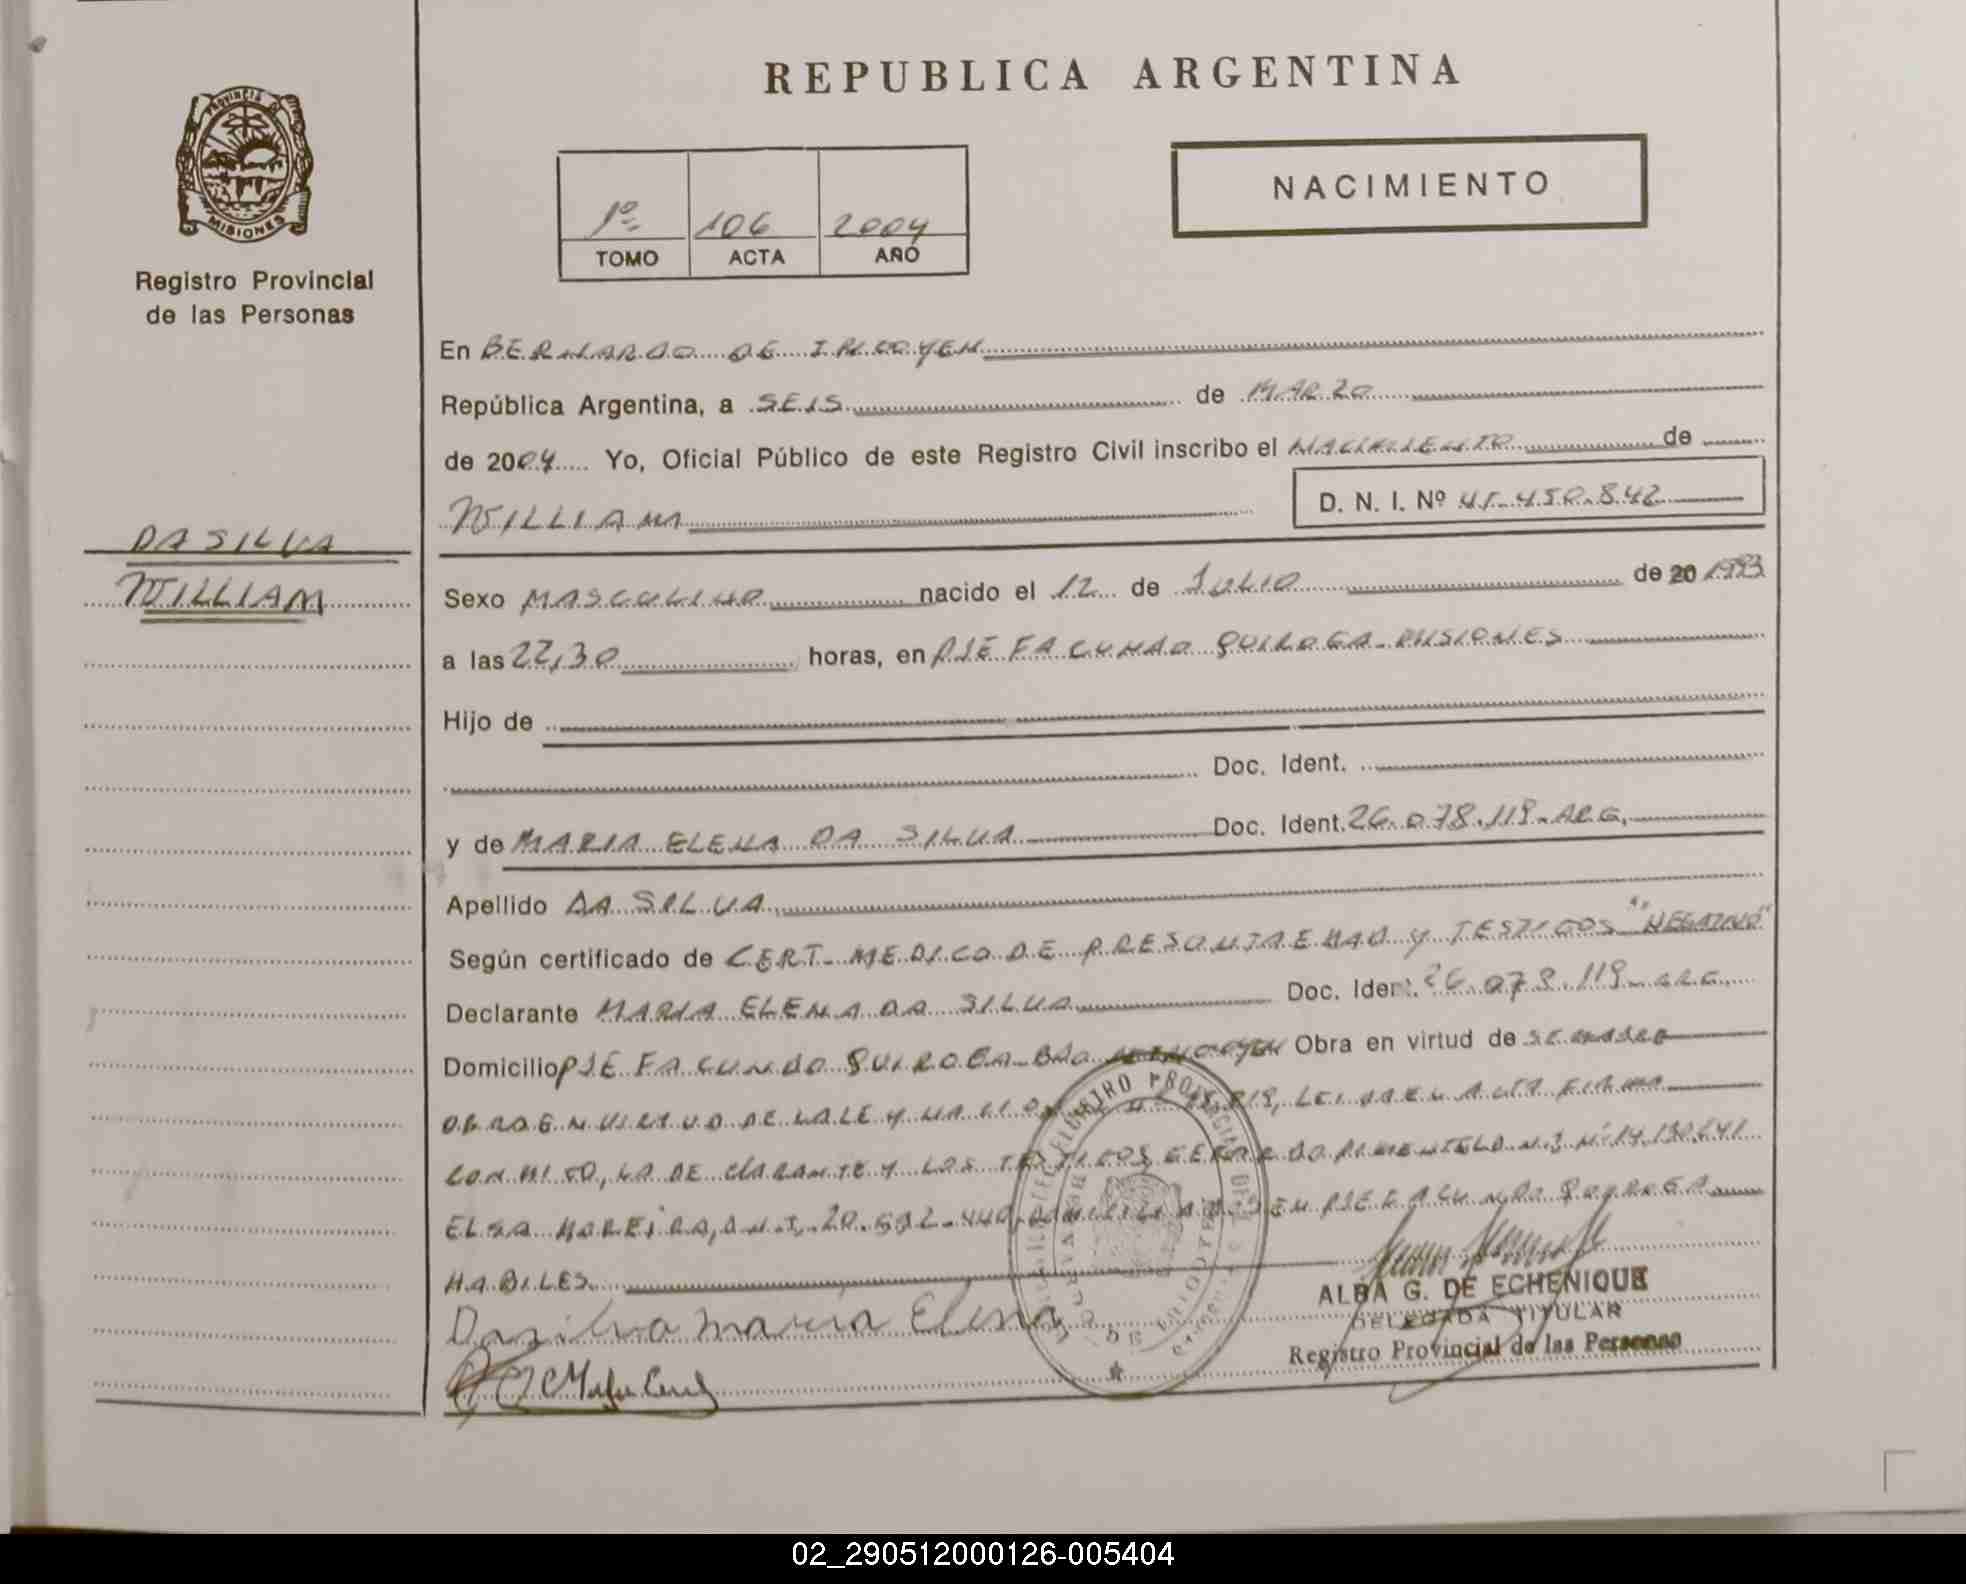 REPUBLICA ARGENTINA
PROVINCIA DE
MISIONES
Registro Provincial
de las Personas
NACIMIENTO
1º 106 2004
TOMO ACTA AÑO
En BERNARDO DE IRIGOYEN
República Argentina, a SEIS de MARZO
de 2004 Yo, Oficial Público de este Registro Civil inscribo el NACIMIENTO de
WILLIAM D. N. I. Nº 45.450.842
DA SILVA
WILLIAM
Sexo MASCULINO nacido el 12 de JULIO de 20 1993
a las 22,30 horas, en PJE FACUNDO QUIROGA - MISIONES
Hijo de
Doc. Ident.
y de MARIA ELENA DA SILVA Doc. Ident. 26.078.119 - ARG.
Apellido DA SILVA
Según certificado de CERT. MEDICO DE PRESUNTA EDAD Y TESTIGOS "NEGATIVO"
Declarante MARIA ELENA DA SILVA Doc. Ident. 26.078.119 - ARG.
Domicilio PJE FACUNDO QUIROGA - BDO IRIGOYEN Obra en virtud de
OBRO EN VIRTUD DE LA LEY NACIONAL LEIDA EL ACTA FIRMA
CONMIGO, LA DECLARANTE Y LOS TESTIGOS GERARDO PIMENTEL D.N.I Nº 14.130.641
ELSA MOREIRA, D.N.I. 20.592.440 DOMICILIADOS EN PJE FACUNDO QUIROGA
HABILES
Dasilva maria Elena
ALBA G. DE ECHENIQUE
DELEGADA TITULAR
Registro Provincial de las Personas
02_290512000126-005404